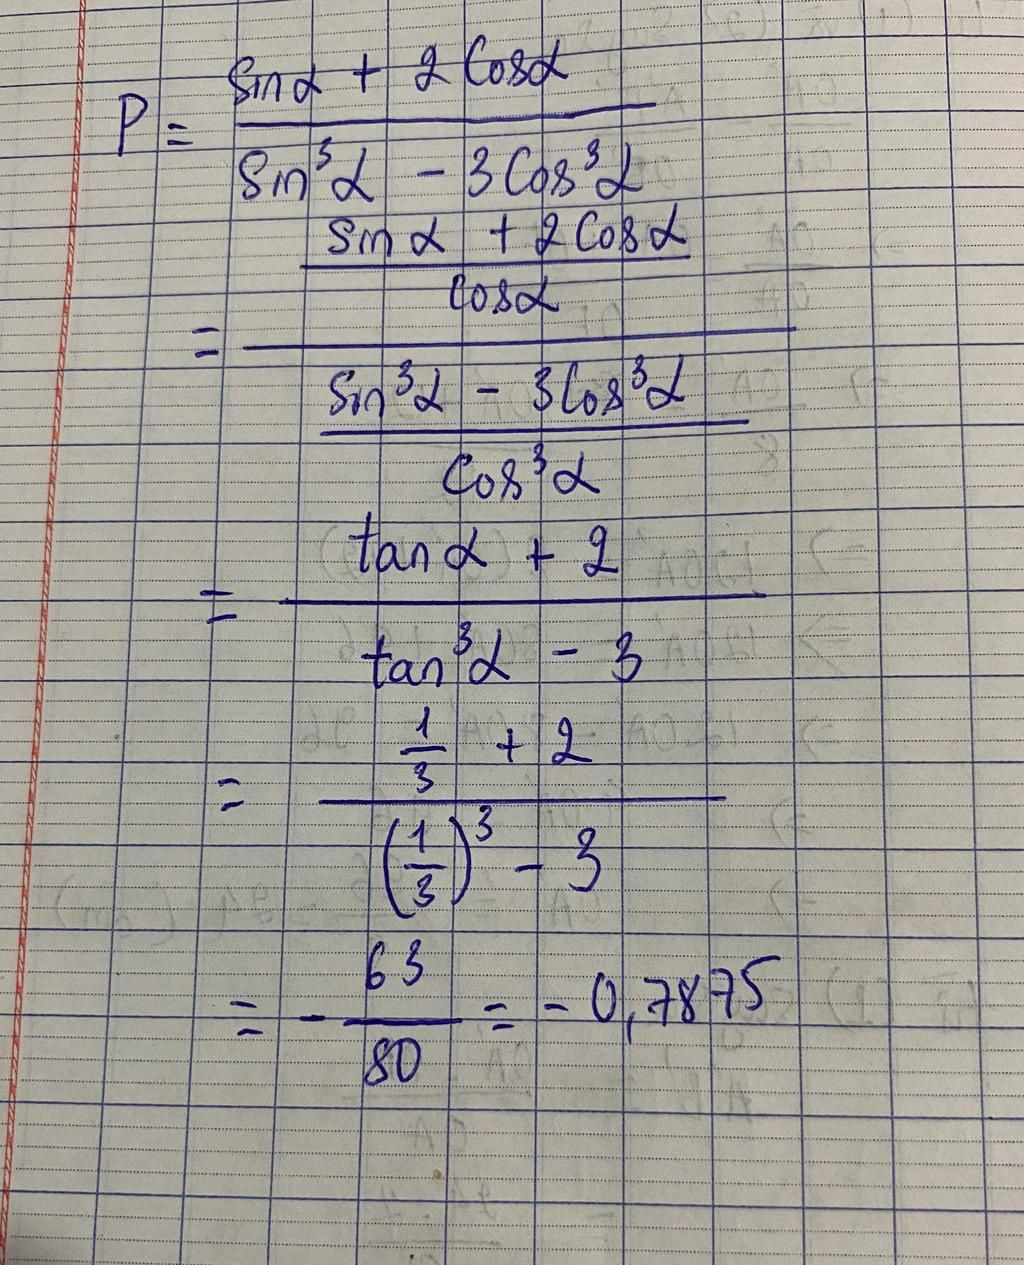 P = (sinα + 2Cosα) / (Sin³α - 3Cos³α)
= ((sinα + 2Cosα) / Cosα) / ((Sin³α - 3Cos³α) / Cos³α)
= (tanα + 2) / (tan³α - 3)
= (1/3 + 2) / ((1/3)³ - 3)
= - 63/80 = - 0,7875